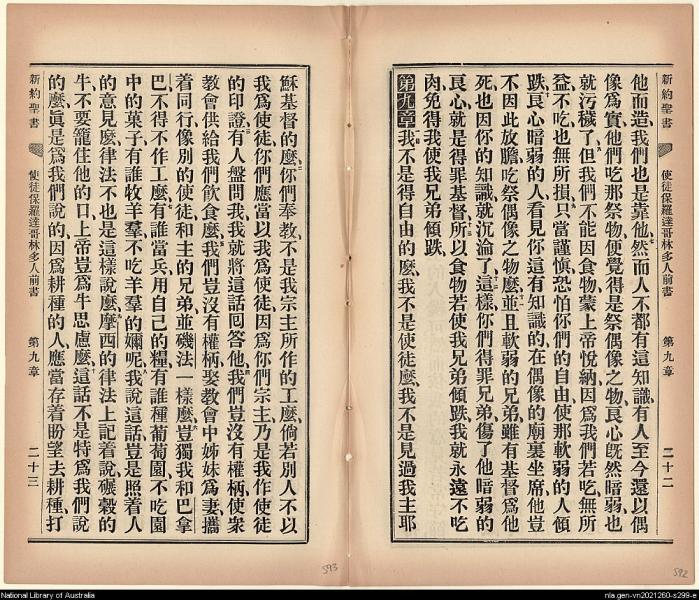 新約聖書 使徒保羅達哥林多人前書 第九章 二十二
他而造、我們也是靠他、然而人不都有這知識、有人至今還以偶
像爲實、他們吃那祭物、便覺得是祭偶像之物、良心旣然暗弱、也
就污穢了、但我們不能因食物蒙上帝悅納、因爲我們若吃、無所
益、不吃也無所損、只當謹慎、恐怕你們的自由使那軟弱的人傾
跌、良心暗弱的人看見你這有知識的、在偶像的廟裏坐席、他豈
不因此放膽吃祭偶像之物麽、並且軟弱的兄弟、雖有基督爲他
死、也因你的知識、就沉淪了、這樣、你們得罪兄弟、傷了他暗弱的
良心、就是得罪基督、所以食物若使我兄弟傾跌、我就永遠不吃
肉、免得我使我兄弟傾跌、
第九章我不是得自由的麽、我不是使徒麽、我不是見過我主耶
穌基督的麽、你們奉教、不是我宗主所作的工麽、倘若別人不以
我爲使徒、你們應當以我爲使徒、因爲你們宗主、乃是我作使徒
的印證、有人盤問我、我就將這話囘答他、我們豈沒有權柄、使衆
教會供給我們飮食麽、我們豈沒有權柄、娶教會中姊妹爲妻、攜
着同行、像別的使徒和主的兄弟、並磯法一樣麽、豈獨我和巴拿
巴不得不作工麽、有誰當兵用自己的糧、有誰種葡萄園不吃園
中的菓子、有誰牧羊羣不吃羊羣的嬭呢、我說這話、豈是照着人
的意見麽、律法不也是這樣說麽、摩西的律法上記着說、碾穀的
牛、不要籠住他的口、上帝豈爲牛思慮麽、這話不是特爲我們說
的麽、眞是爲我們說的、因爲耕種的人、應當存着盼望去耕種、打
新約聖書 使徒保羅達哥林多人前書 第九章 二十三
593
592
National Library of Australia
nla.gen-vn2021260-s299-e